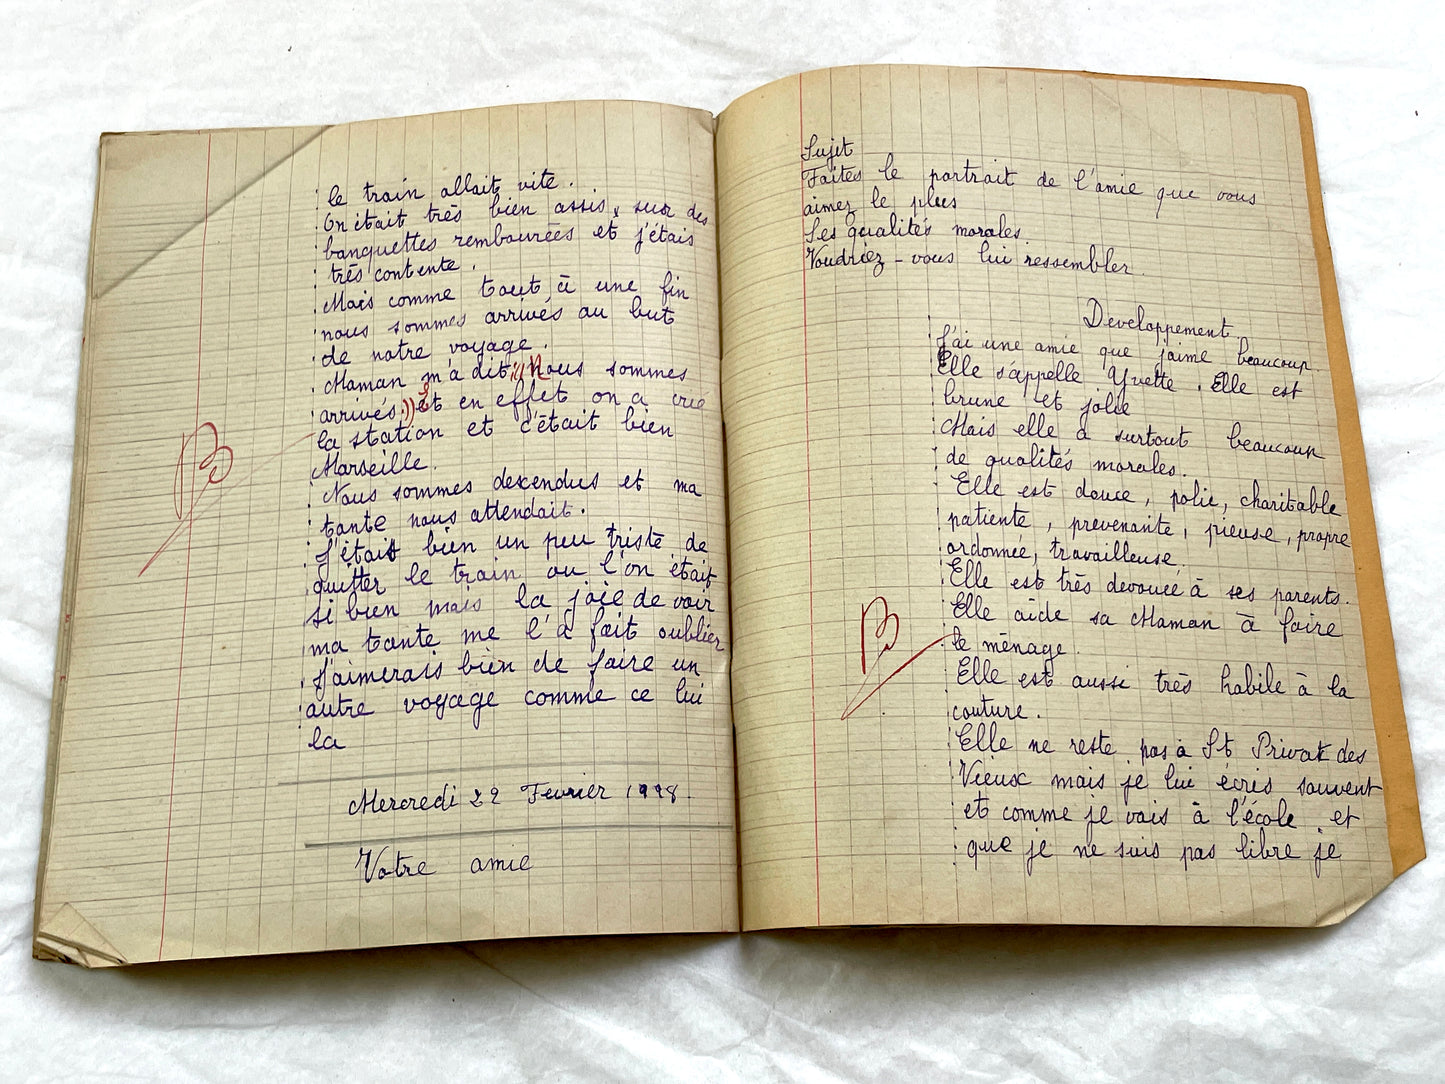 le train allait vite.
On était très bien assis, sur des
banquettes rembourrées et j'étais
très contente.
Mais comme tout à une fin
nous sommes arrivés au but
de notre voyage.
Maman m'a dit « Nous sommes
arrivés » Et en effet on a crié
la station et c'était bien
Marseille.
Nous sommes descendus et ma
tante nous attendait.
J'étais bien un peu triste de
quitter le train ou l'on était
si bien mais la joie de voir
ma tante me l'a fait oublier
J'aimerais bien de faire un
autre voyage comme ce lui
la
Mercredi 22 Fevrier
Votre amie
B
Sujet
Faites le portrait de l'amie que vous
aimez le plus
Ses qualités morales.
Voudriez-vous lui ressembler.
Developpement
J'ai une amie que j'aime beaucoup.
Elle s'appelle Yvette. Elle est
brune et jolie
Mais elle a surtout beaucoup
de qualités morales.
Elle est douce, polie, charitable
patiente, prevenante, pieuse, propre
ordonnée, travailleuse,
Elle est très devouée à ses parents.
Elle aide sa Maman à faire
le ménage.
Elle est aussi très habile à la
couture.
Elle ne reste pas à St Privat des
Vieux mais je lui écris souvent
et comme je vais à l'école et
que je ne suis pas libre je
B